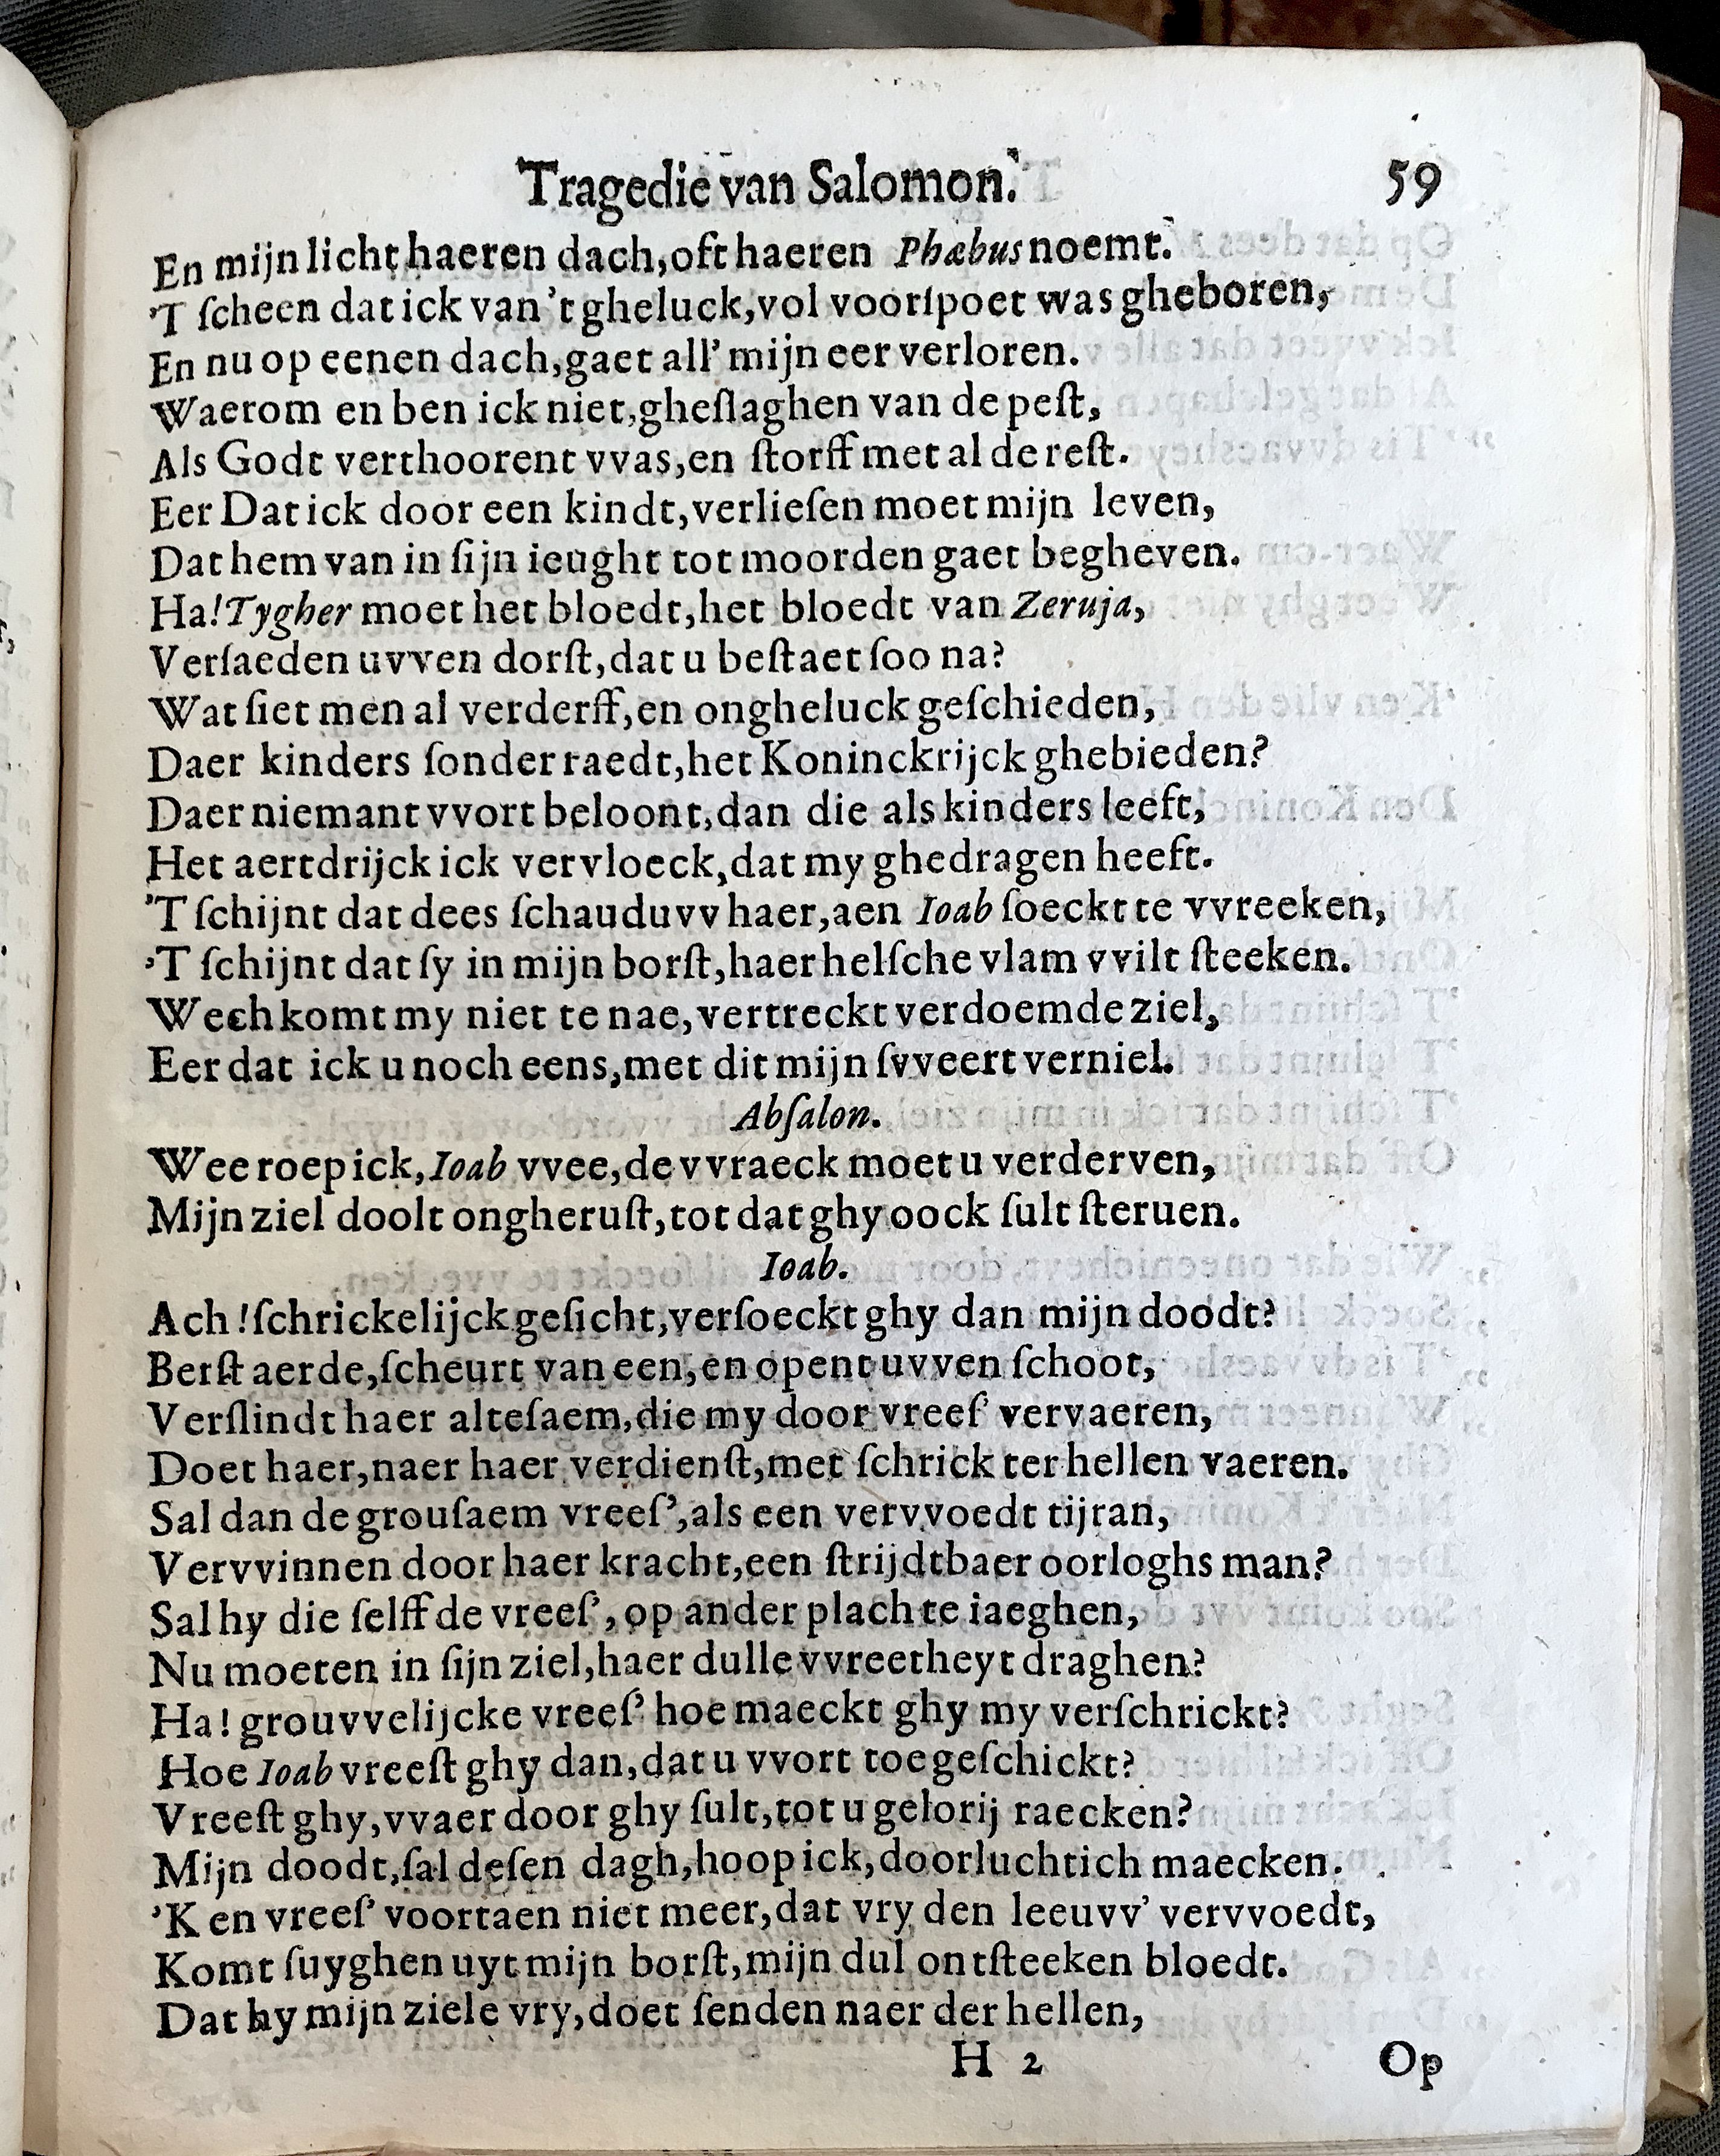 Tragedie van Salomon. 59
En mijn licht haeren dach, oft haeren Phæbus noemt.
'T ſcheen dat ick van 't gheluck, vol voorſpoet was gheboren,
En nu op eenen dach, gaet all' mijn eer verloren.
Waerom en ben ick niet, gheſlaghen van de peſt,
Als Godt verthoorent vvas, en ſtorff met al de reſt.
Eer Dat ick door een kindt, verlieſen moet mijn leven,
Dat hem van in ſijn ieught tot moorden gaet begheven.
Ha! Tygher moet het bloedt, het bloedt van Zeruja,
Verſaeden uvven dorſt, dat u beſtaet ſoo na?
Wat ſiet men al verderff, en ongheluck geſchieden,
Daer kinders ſonder raedt, het Koninckrijck ghebieden?
Daer niemant vvort beloont, dan die als kinders leeft,
Het aertdrijck ick vervloeck, dat my ghedragen heeft.
'T ſchijnt dat dees ſchauduvv haer, aen Ioab ſoeckt te vvreeken,
'T ſchijnt dat ſy in mijn borſt, haer helſche vlam vvilt ſteeken.
Wech komt my niet te nae, vertreckt verdoemde ziel,
Eer dat ick u noch eens, met dit mijn ſvveert verniel.
Abſalon.
Wee roep ick, Ioab vvee, de vvraeck moet u verderven,
Mijn ziel doolt ongheruſt, tot dat ghy oock ſult ſteruen.
Ioab.
Ach! ſchrickelijck geſicht, verſoeckt ghy dan mijn doodt?
Berſt aerde, ſcheurt van een, en opent uvven ſchoot,
Verſlindt haer alteſaem, die my door vreeſ' vervaeren,
Doet haer, naer haer verdienſt, met ſchrick ter hellen vaeren.
Sal dan de grouſaem vreeſ', als een vervvoedt tijran,
Vervvinnen door haer kracht, een ſtrijdtbaer oorloghs man?
Sal hy die ſelff de vreeſ', op ander plach te iaeghen,
Nu moeten in ſijn ziel, haer dulle vvreetheyt draghen?
Ha! grouvvelijcke vreeſ' hoe maeckt ghy my verſchrickt?
Hoe Ioab vreeſt ghy dan, dat u vvort toegeſchickt?
Vreeſt ghy, vvaer door ghy ſult, tot u gelorij raecken?
Mijn doodt, ſal deſen dagh, hoop ick, doorluchtich maecken.
'K en vreeſ' voortaen niet meer, dat vry den leeuvv' vervvoedt,
Komt ſuyghen uyt mijn borſt, mijn dul ontſteeken bloedt.
Dat hy mijn ziele vry, doet ſenden naer der hellen,
H 2 Op